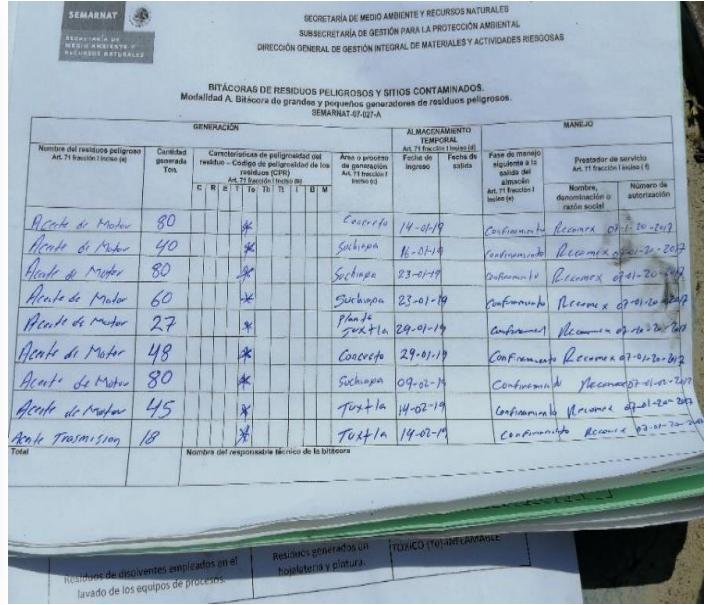 SEMARNAT
SECRETARÍA DE
MEDIO AMBIENTE Y
RECURSOS NATURALES
SECRETARÍA DE MEDIO AMBIENTE Y RECURSOS NATURALES
SUBSECRETARÍA DE GESTIÓN PARA LA PROTECCIÓN AMBIENTAL
DIRECCIÓN GENERAL DE GESTIÓN INTEGRAL DE MATERIALES Y ACTIVIDADES RIESGOSAS
BITÁCORAS DE RESIDUOS PELIGROSOS Y SITIOS CONTAMINADOS.
Modalidad A. Bitácora de grandes y pequeños generadores de residuos peligrosos.
SEMARNAT-07-027-A
GENERACIÓN ALMACENAMIENTO TEMPORAL Art. 71 fracción I inciso (d) MANEJO
Nombre del residuos peligroso Art. 71 fracción I inciso (a)
Cantidad generada Ton.
Características de peligrosidad del residuo – Código de peligrosidad de los residuos (CPR) Art. 71 fracción I inciso (b)
C R E T Te Th Tt I B M
Área o proceso de generación Art. 71 fracción I inciso (c)
Fecha de ingreso
Fecha de salida
Fase de manejo siguiente a la salida del almacén Art. 71 fracción I inciso (e)
Prestador de servicio Art. 71 fracción I inciso (f)
Nombre, denominación o razón social
Número de autorización
Aceite de Motor 80 Concreto 14-01-19 Confinamiento Recomex
Aceite de Motor 40 Suchiapa 16-01-19 Confinamiento Recomex 07-01-20-2017
Aceite de Motor 80 Suchiapa 23-01-19 Confinamiento Recomex 07-01-20-2017
Aceite de Motor 60 Suchiapa 23-01-19 Confinamiento Recomex 07-01-20-2017
Aceite de Motor 27 Planta Tuxtla 29-01-19 Recomex
Aceite de Motor 48 Concreto 29-01-19 Confinamiento Recomex 07-01-20-2017
Aceite de Motor 80 Suchiapa 09-02-19 Recomex 07-01-20-2017
Aceite de Motor 45 Tuxtla 14-02-19 Confinamiento Recomex 07-01-20-2017
Aceite Trasmision 18 Tuxtla 14-02-19 Confinamiento Recomex
Total Nombre del responsable técnico de la bitácora
Residuos de disolventes empleados en el
lavado de los equipos de procesos.
Residuos generados en
hojalatería y pintura.
TOXICO (Te)-INFLAMABLE